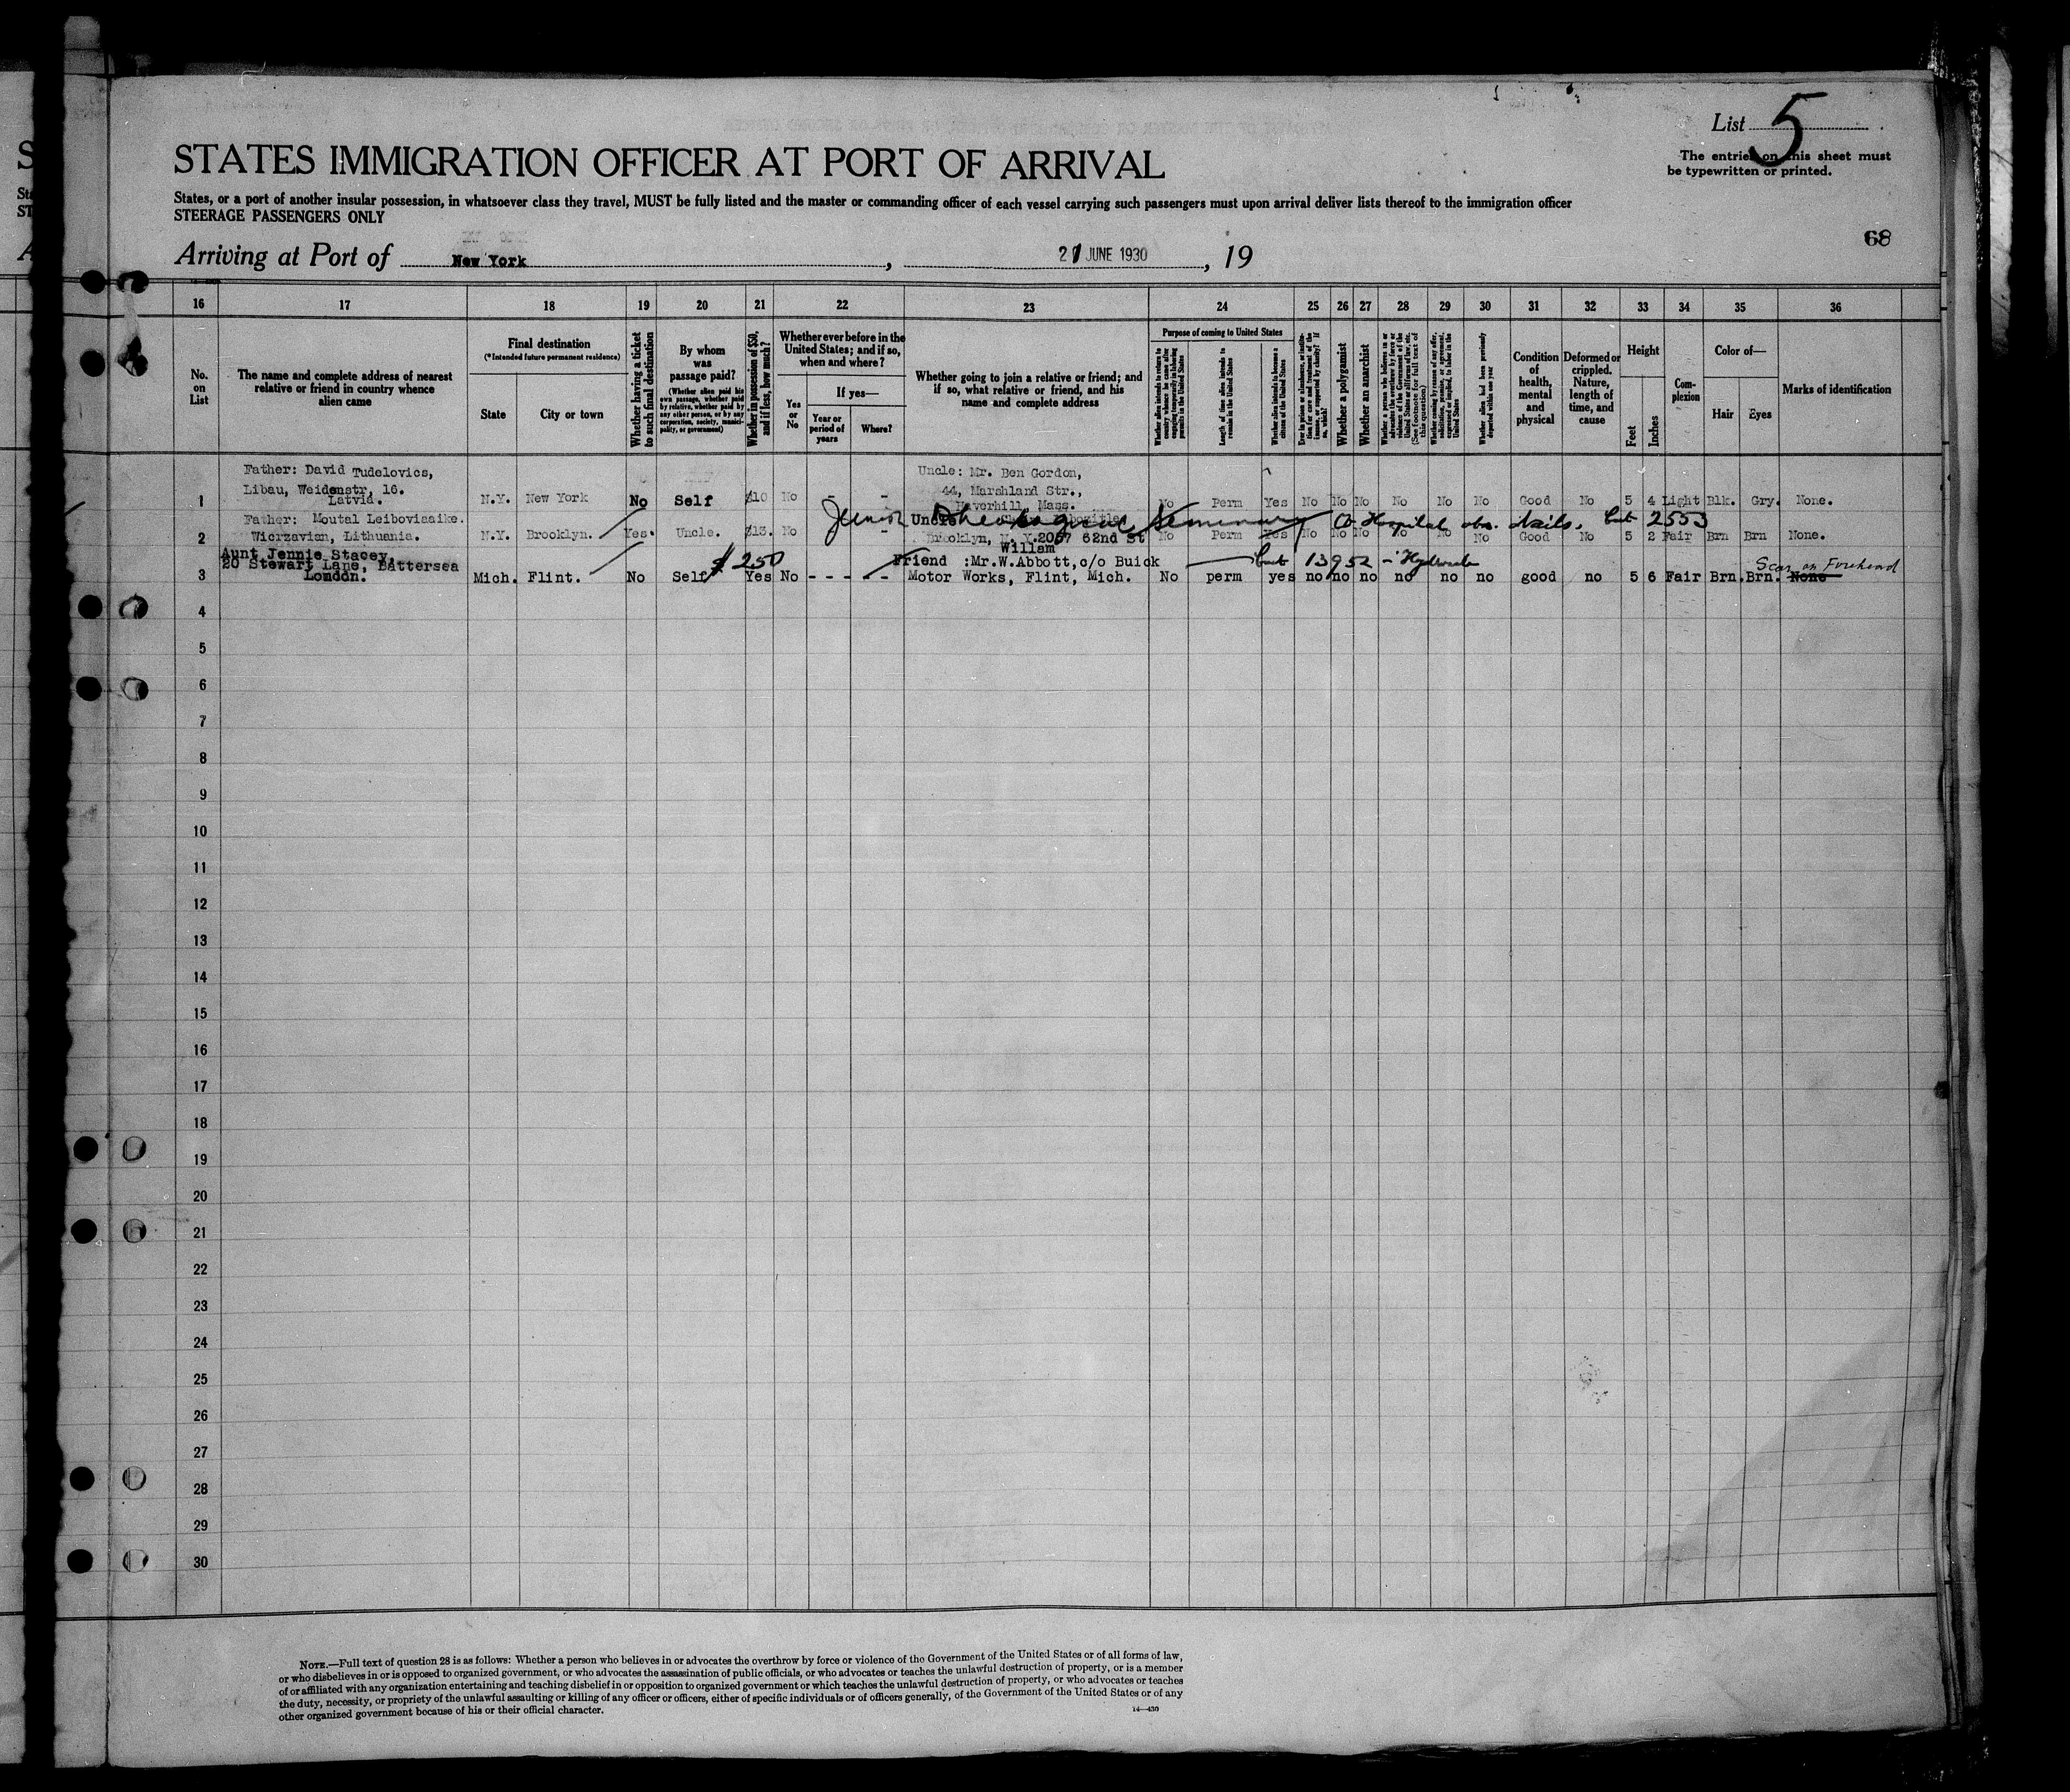 List 5
The entries on this sheet must
be typewritten or printed.
STATES IMMIGRATION OFFICER AT PORT OF ARRIVAL
States, or a port of another insular possession, in whatsoever class they travel, MUST be fully listed and the master or commanding officer of each vessel carrying such passengers must upon arrival deliver lists thereof to the immigration officer
STEERAGE PASSENGERS ONLY
68
Arriving at Port of New York, 21 JUNE 1930, 19
16 17 18 19 20 21 22 23 24 25 26 27 28 29 30 31 32 33 34 35 36
No. on List
The name and complete address of nearest
relative or friend in country whence
alien came
Final destination
(*Intended future permanent residence)
State
City or town
Whether having a ticket
to such final destination
By whom
was
passage paid?
(Whether alien paid his
own passage, whether paid
by relative, whether paid by
any other person, or by any
corporation, society, munici-
pality, or government)
Whether in possession of $50,
and if less, how much?
Whether ever before in the
United States; and if so,
when and where?
Yes
or
No
If yes—
Year or
period of
years
Where?
Whether going to join a relative or friend; and
if so, what relative or friend, and his
name and complete address
Purpose of coming to United States
Whether alien intends to return to
country whence he came after
engaging temporarily in laboring
pursuits in the United States
Length of time alien intends to
remain in the United States
Whether alien intends to become a
citizen of the United States
Ever in prison or almshouse, or institu-
tion for care and treatment of the
insane, or supported by charity? If
so, which?
Whether a polygamist
Whether an anarchist
Whether a person who believes in or
advocates the overthrow by force or
violence of the Government of the
United States or all forms of law, etc.
(See footnote for full text of
this question)
Whether coming by reason of any offer,
solicitation, promise, or agreement,
expressed or implied, to labor in the
United States
Whether alien had been previously
deported within one year
Condition
of
health,
mental
and
physical
Deformed or
crippled.
Nature,
length of
time, and
cause
Height
Feet
Inches
Com-
plexion
Color of—
Hair
Eyes
Marks of identification
Father: David Tudelovics, Uncle: Mr. Ben Gordon,
Libau, Weidenstr, 16. 44, Marshland Str.,
1 Latvia. N.Y. New York No Self $10 No - - Haverhill, Mass. No Perm Yes No No No No No No Good No 5 4 Light Blk. Gry. None.
Father: Moutal Leibovissike. Junior Uncle Seminary Hospital obs. 2553
2 Wierzavian, Lithuania. N.Y. Brooklyn. Yes. Uncle. $13. No - Brooklyn, N. Y. 2067 62nd St No Perm Yes No No No No No No Good No 5 2 Fair Brn Brn None.
Aunt Jennie Stacey, Willam
20 Stewart Lane, Battersea $250 Friend :Mr.W.Abbott,c/o Buick 13952 Scar on Forehead
3 London. Mich. Flint. No Self Yes No - - - - - Motor Works, Flint, Mich. No perm yes no no no no no no good no 5 6 Fair Brn. Brn. None
4
5
6
7
8
9
10
11
12
13
14
15
16
17
18
19
20
21
22
23
24
25
26
27
28
29
30
NOTE.—Full text of question 28 is as follows: Whether a person who believes in or advocates the overthrow by force or violence of the Government of the United States or of all forms of law,
or who disbelieves in or is opposed to organized government, or who advocates the assassination of public officials, or who advocates or teaches the unlawful destruction of property, or is a member
of or affiliated with any organization entertaining and teaching disbelief in or opposition to organized government or which teaches the unlawful destruction of property, or who advocates or teaches
the duty, necessity, or propriety of the unlawful assaulting or killing of any officer or officers, either of specific individuals or of officers generally, of the Government of the United States or of any
other organized government because of his or their official character.
14—430